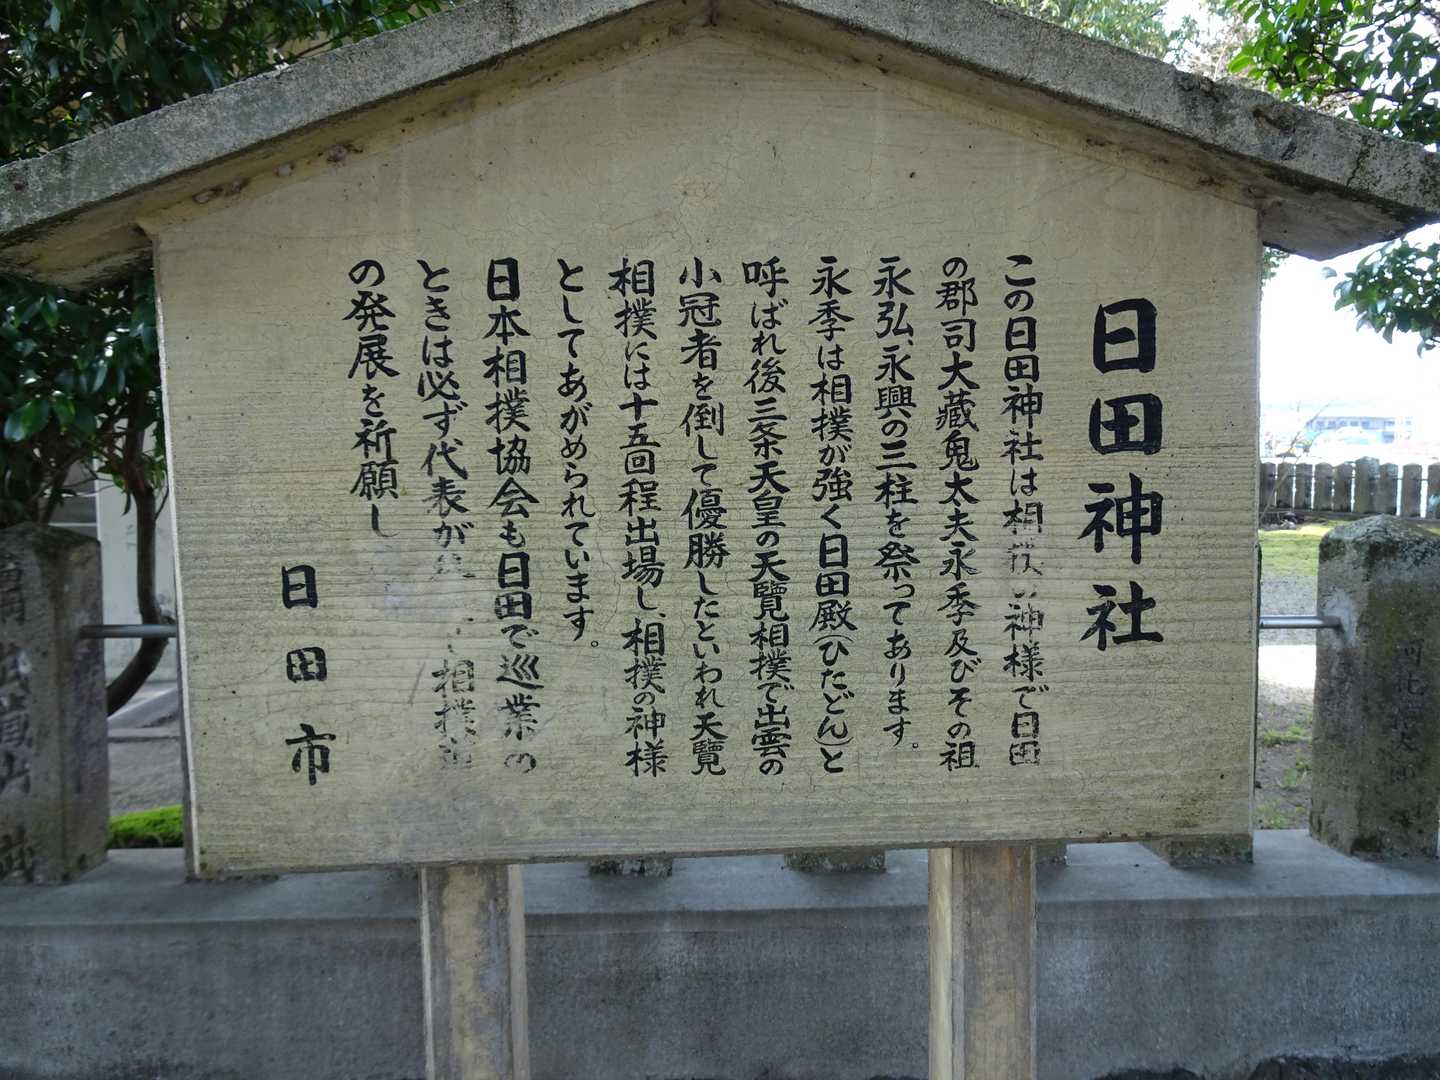 日田神社
この日田神社は相撲の神様で日田
の郡司大蔵鬼太夫永季及びその祖
永弘、永興の三柱を祭ってあります。
永季は相撲が強く日田殿(ひたどん)と
呼ばれ後三条天皇の天覧相撲で出雲の
小冠者を倒して優勝したといわれ天覧
相撲には十五回程出場し、相撲の神様
としてあがめられています。
日本相撲協会も日田で巡業の
ときは必ず代表が 相撲道
の発展を祈願し
日田市